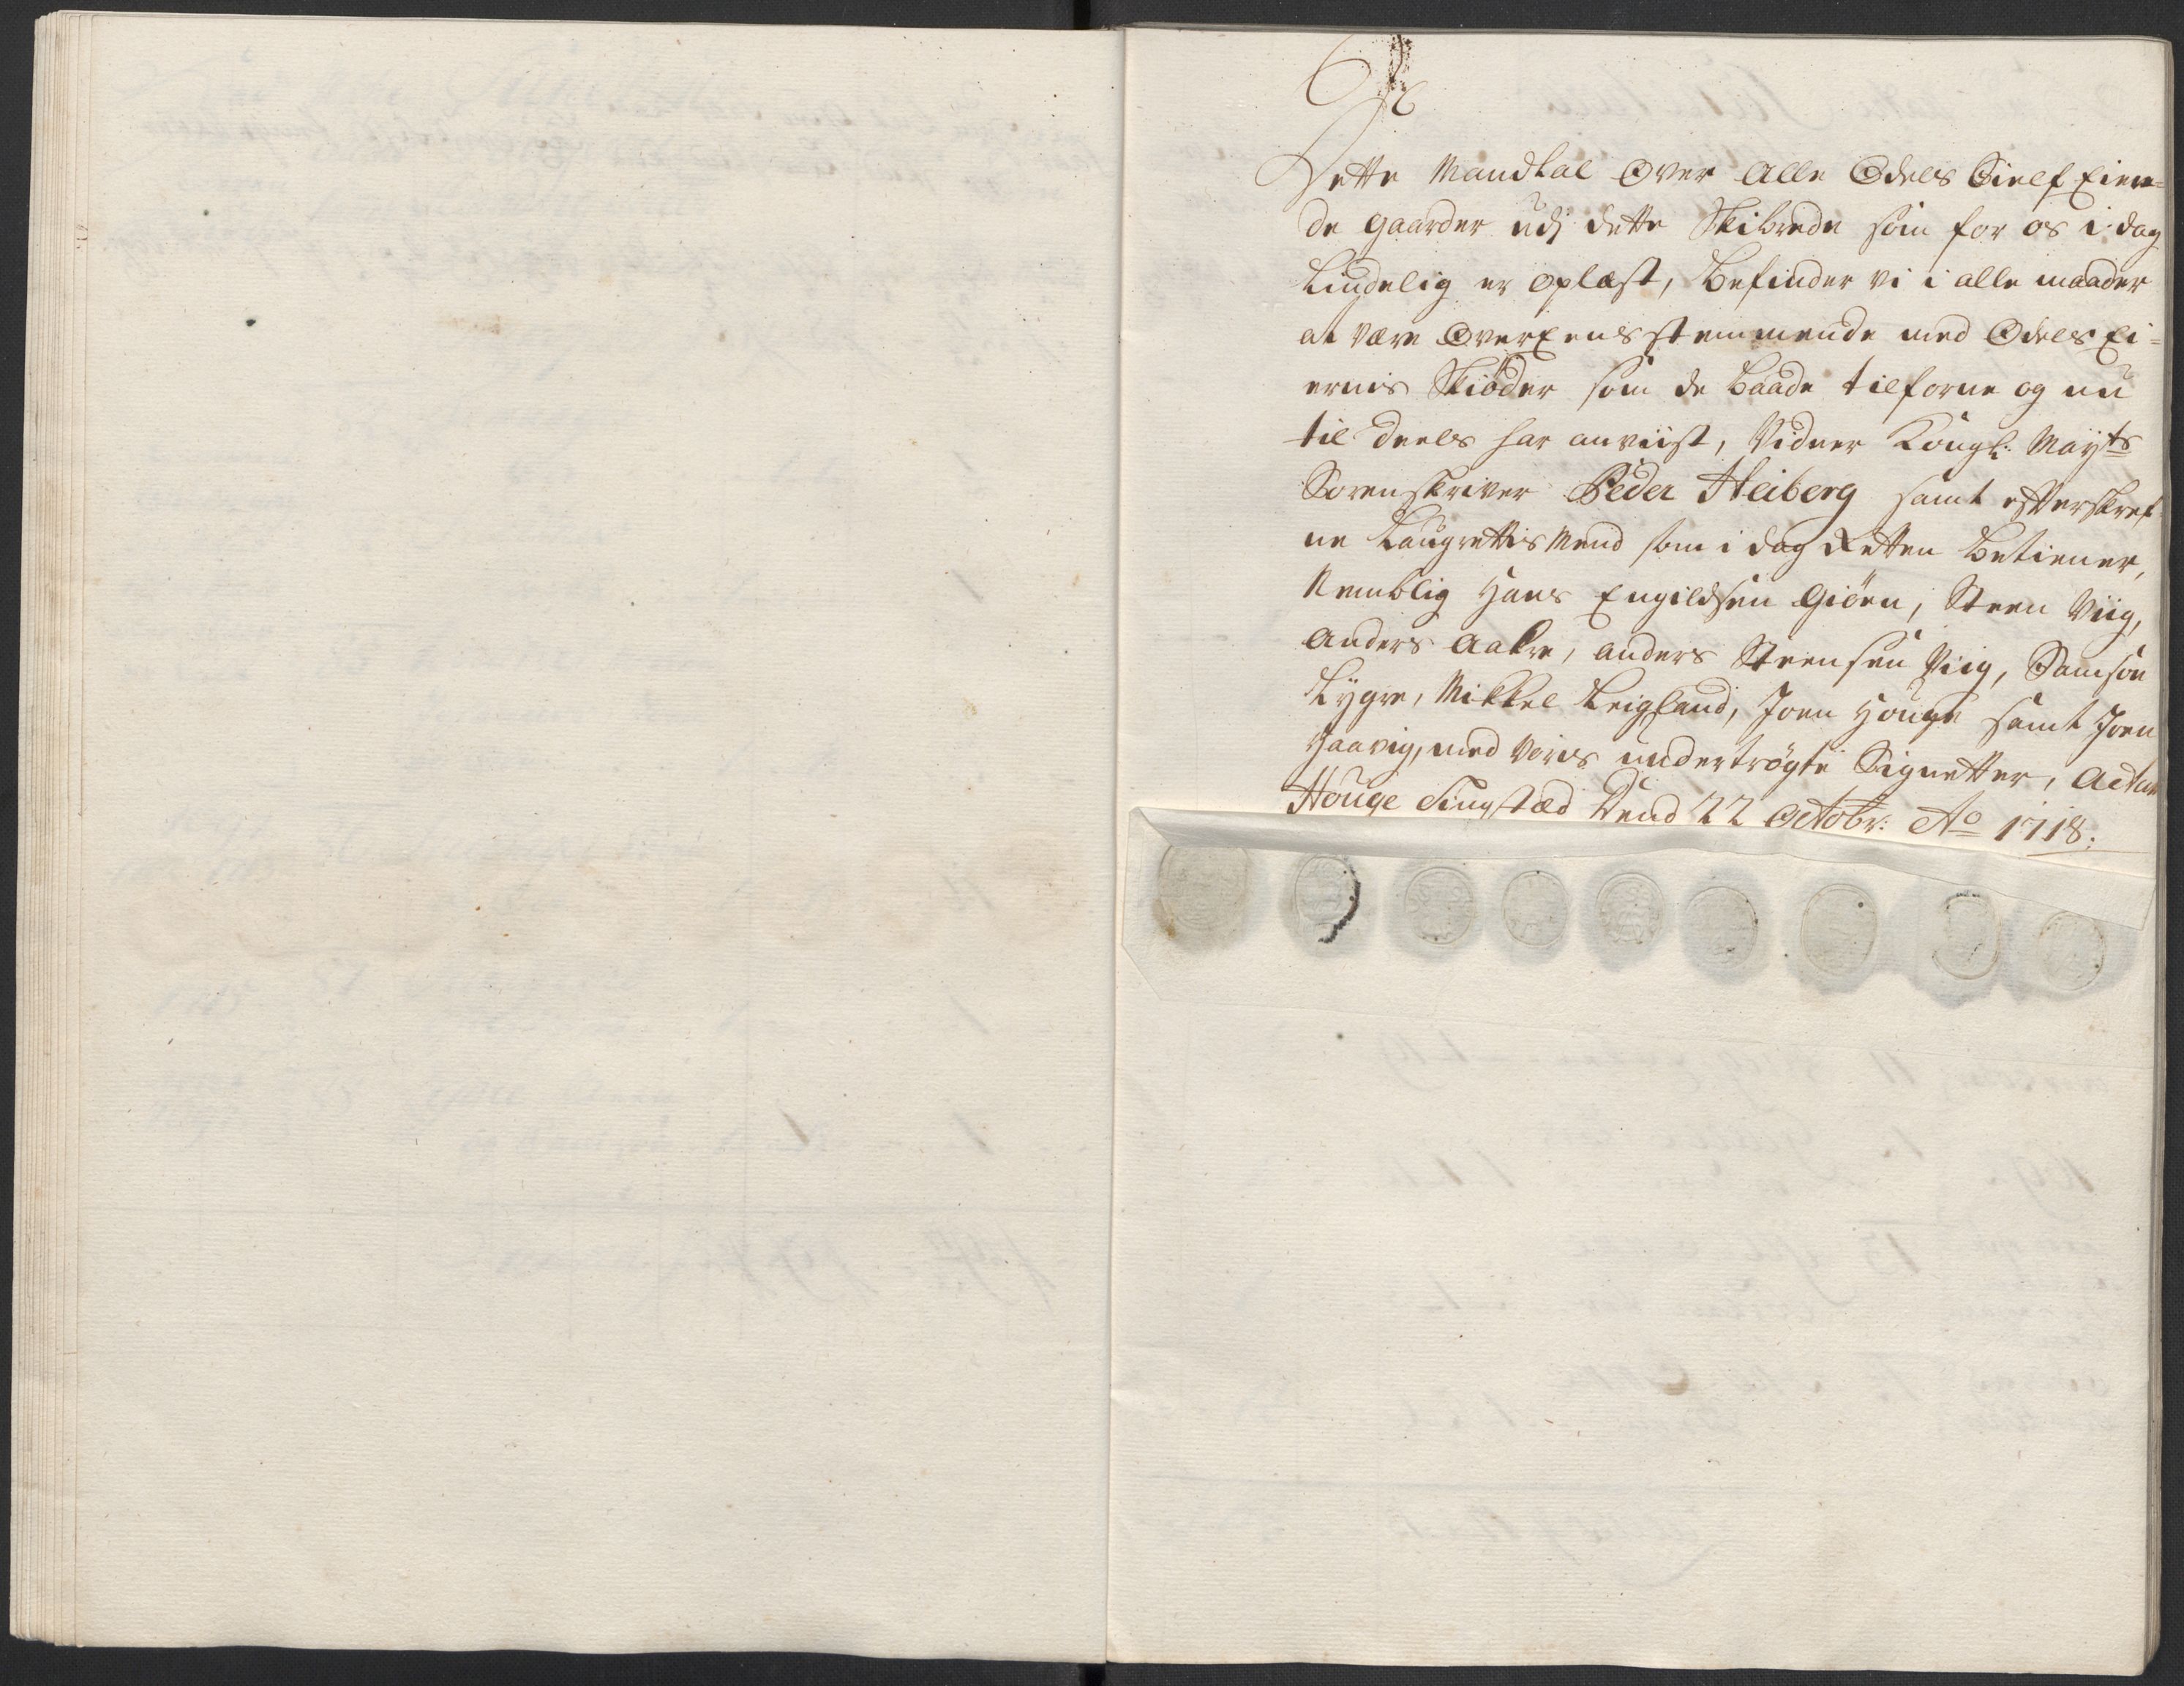 Dette Mandtal Over Alle Odels Sielf Eien=
de gaarder udj dette Skibrede som for os i dag
Lindelig er oplæst, befinder vi i alle maader
at være OverEens stemmende med Odels Ei=
ernis Skiøder som de baade tilforne og nu
til deels har anviist, Vidner Kongl: Mayts
Sorenskriver Peder Heiberg samt efterskref
ne Laugrettis Mend som i dag Retten betiener,
Nemblig Hans Engildsen Giøen, Steen Viig,
Anders Aakre, Anders Steensen Viig, Samson
Lygre, Mikkel Leigland, Joen Houge samt Joen
Haavig, med voris undertrögte Signetter, Actum
Houge Tingstæd Dend 22 Octobr: Ao 1718.